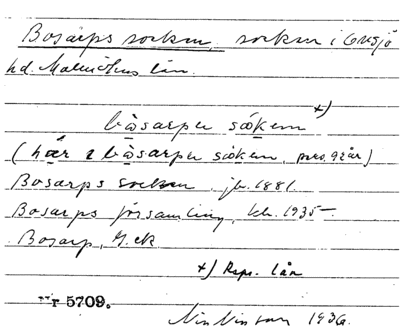 Bosarps socken, socken i Onsjö
hd. Malmöhus län.
bòsarps såkem x)
(hǽr i bòsarps såkem, pres. 92 år)
Bosarps socken jb. 1881.
Bosarps församling, kb. 1935
Bosarp, G. ek
x) Rspr. lån
Nr 5709.
1936